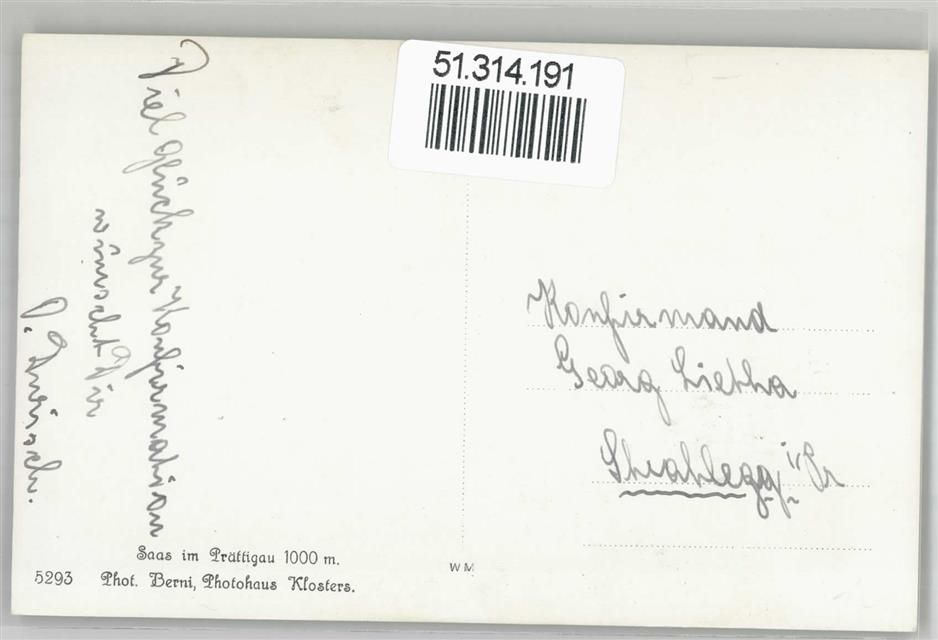 51.314.191
Viel Glück zur Konfirmation
wünscht Dir
Konfirmand
Georg Lietha
i/Pr
Saas im Prättigau 1000 m.
5293 Phot. Berni, Photohaus Klosters.
WM